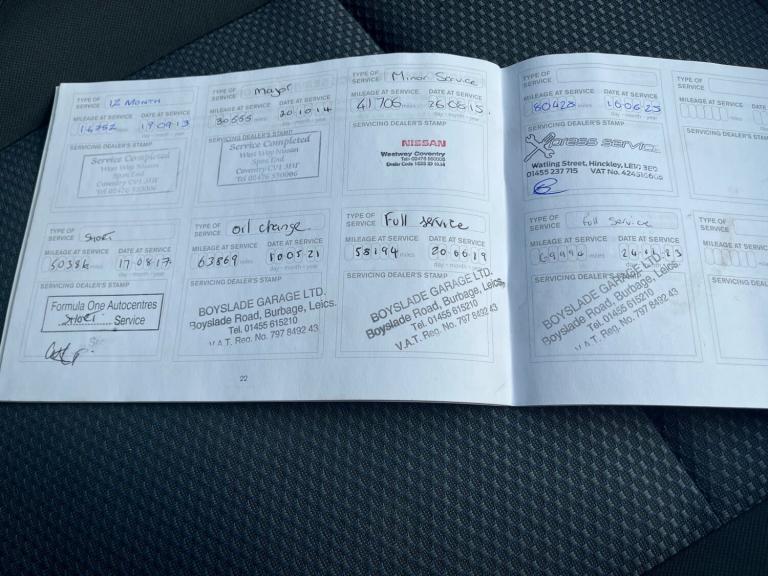 TYPE OF SERVICE 12 MONTH
MILEAGE AT SERVICE DATE AT SERVICE
miles 19 09 13
day - month - year
SERVICING DEALER'S STAMP
Service Completed
West Way Nissan
Spon End
Coventry CV1 3HF
Tel 02476
TYPE OF SERVICE Major
MILEAGE AT SERVICE DATE AT SERVICE
30655 miles 20 10 14
day - month - year
SERVICING DEALER'S STAMP
Service Completed
West Way Nissan
Spon End
Coventry CV1 3HF
Tel 02476
TYPE OF SERVICE Minor Service
MILEAGE AT SERVICE DATE AT SERVICE
41706 miles 26 08 15
day - month - year
SERVICING DEALER'S STAMP
NISSAN
Westway Coventry
Dealer Code
TYPE OF SERVICE
MILEAGE AT SERVICE DATE AT SERVICE
80428 miles 16 06 25
day - month - year
SERVICING DEALER'S STAMP
Xpress Service
Watling Street, Hinckley, LE10 3ED
01455 237 715 VAT No.
TYPE OF SERVICE
MILEAGE AT SERVICE
miles
SERVICING DEALER'S STAMP
TYPE OF SERVICE Short
MILEAGE AT SERVICE DATE AT SERVICE
50386 miles 17 08 17
day - month - year
SERVICING DEALER'S STAMP
Formula One Autocentres
Short Service
TYPE OF SERVICE oil change
MILEAGE AT SERVICE DATE AT SERVICE
63869 miles 10 05 21
day - month - year
SERVICING DEALER'S STAMP
BOYSLADE GARAGE LTD.
Boyslade Road, Burbage, Leics.
Tel. 01455 615210
V.A.T. Reg. No. 797 8492 43
TYPE OF SERVICE Full service
MILEAGE AT SERVICE DATE AT SERVICE
58194 miles 20 06 19
day - month - year
SERVICING DEALER'S STAMP
BOYSLADE GARAGE LTD.
Boyslade Road, Burbage, Leics.
Tel. 01455 615210
V.A.T. Reg. No. 797 8492 43
TYPE OF SERVICE Full service
MILEAGE AT SERVICE DATE AT SERVICE
69994 miles 23
day - month - year
SERVICING DEALER'S STAMP
BOYSLADE GARAGE LTD.
Boyslade Road, Burbage, Leics.
Tel. 01455 615210
V.A.T. Reg. No. 797 8492 43
TYPE OF SERVICE
MILEAGE AT SERVICE
miles
SERVICING DEALER'S
22